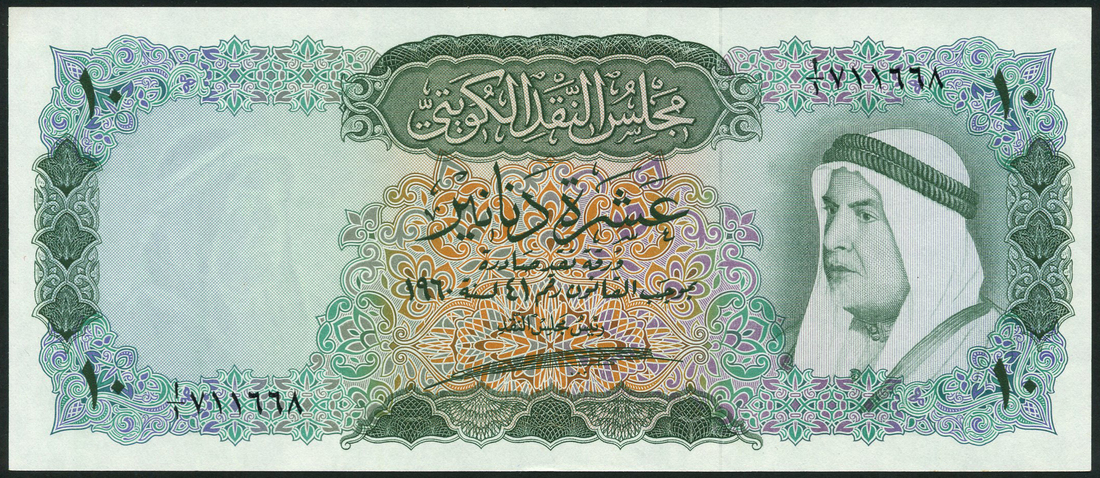 ١٠
١٠
١/١ ٧١١٦٦٨
مجلس النقد الكويتي
عشرة دنانير
ورقة نقد صادرة
بموجب القانون رقم ٤١ لسنة ١٩٦٠
رئيس مجلس النقد
١/١ ٧١١٦٦٨
١٠
١٠